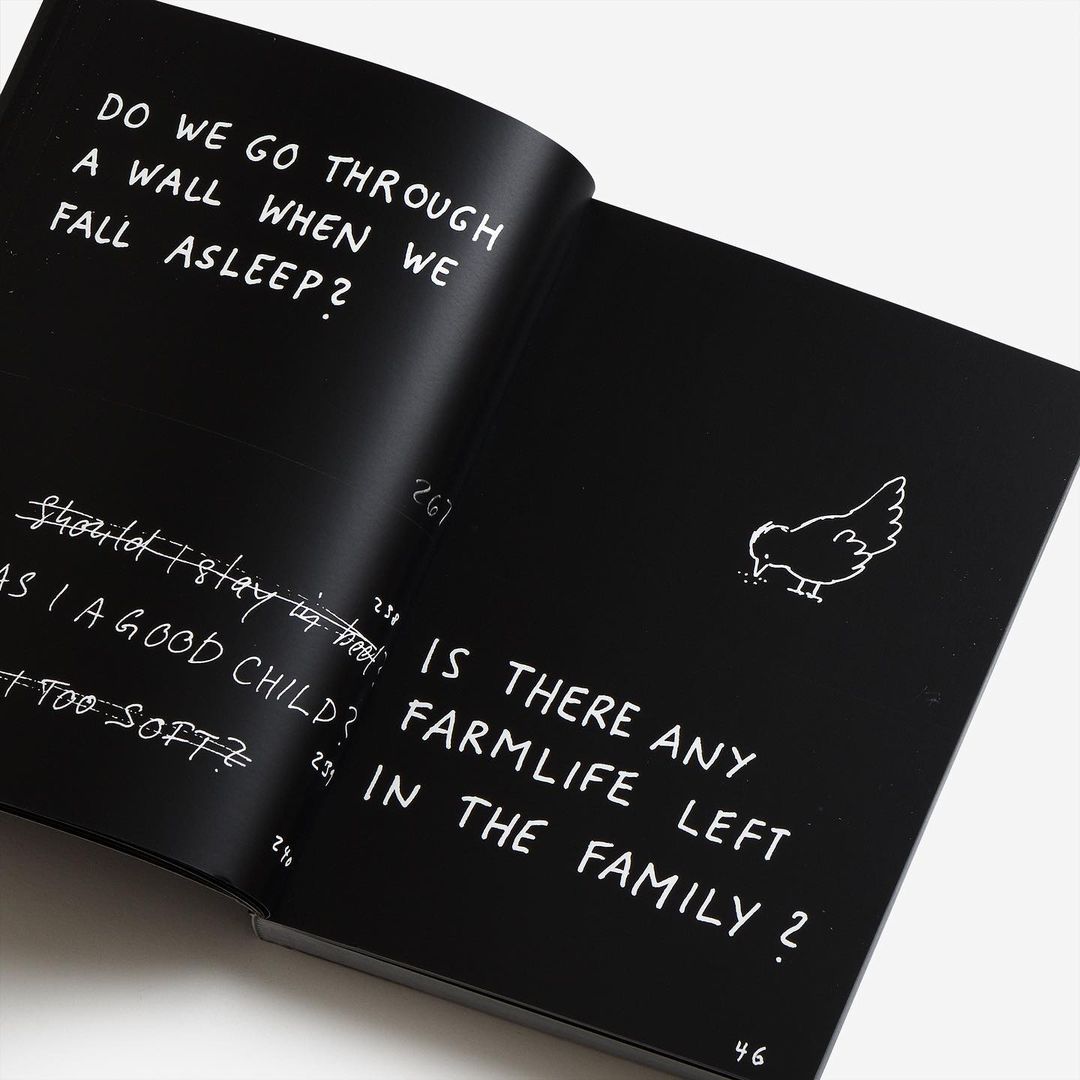 DO WE GO THROUGH
A WALL WHEN WE
FALL ASLEEP?
267
Should I stay in
238
AS I A GOOD CHILD?
239
TOO SOFT?
240
IS THERE ANY
FARMLIFE LEFT
IN THE FAMILY?
46